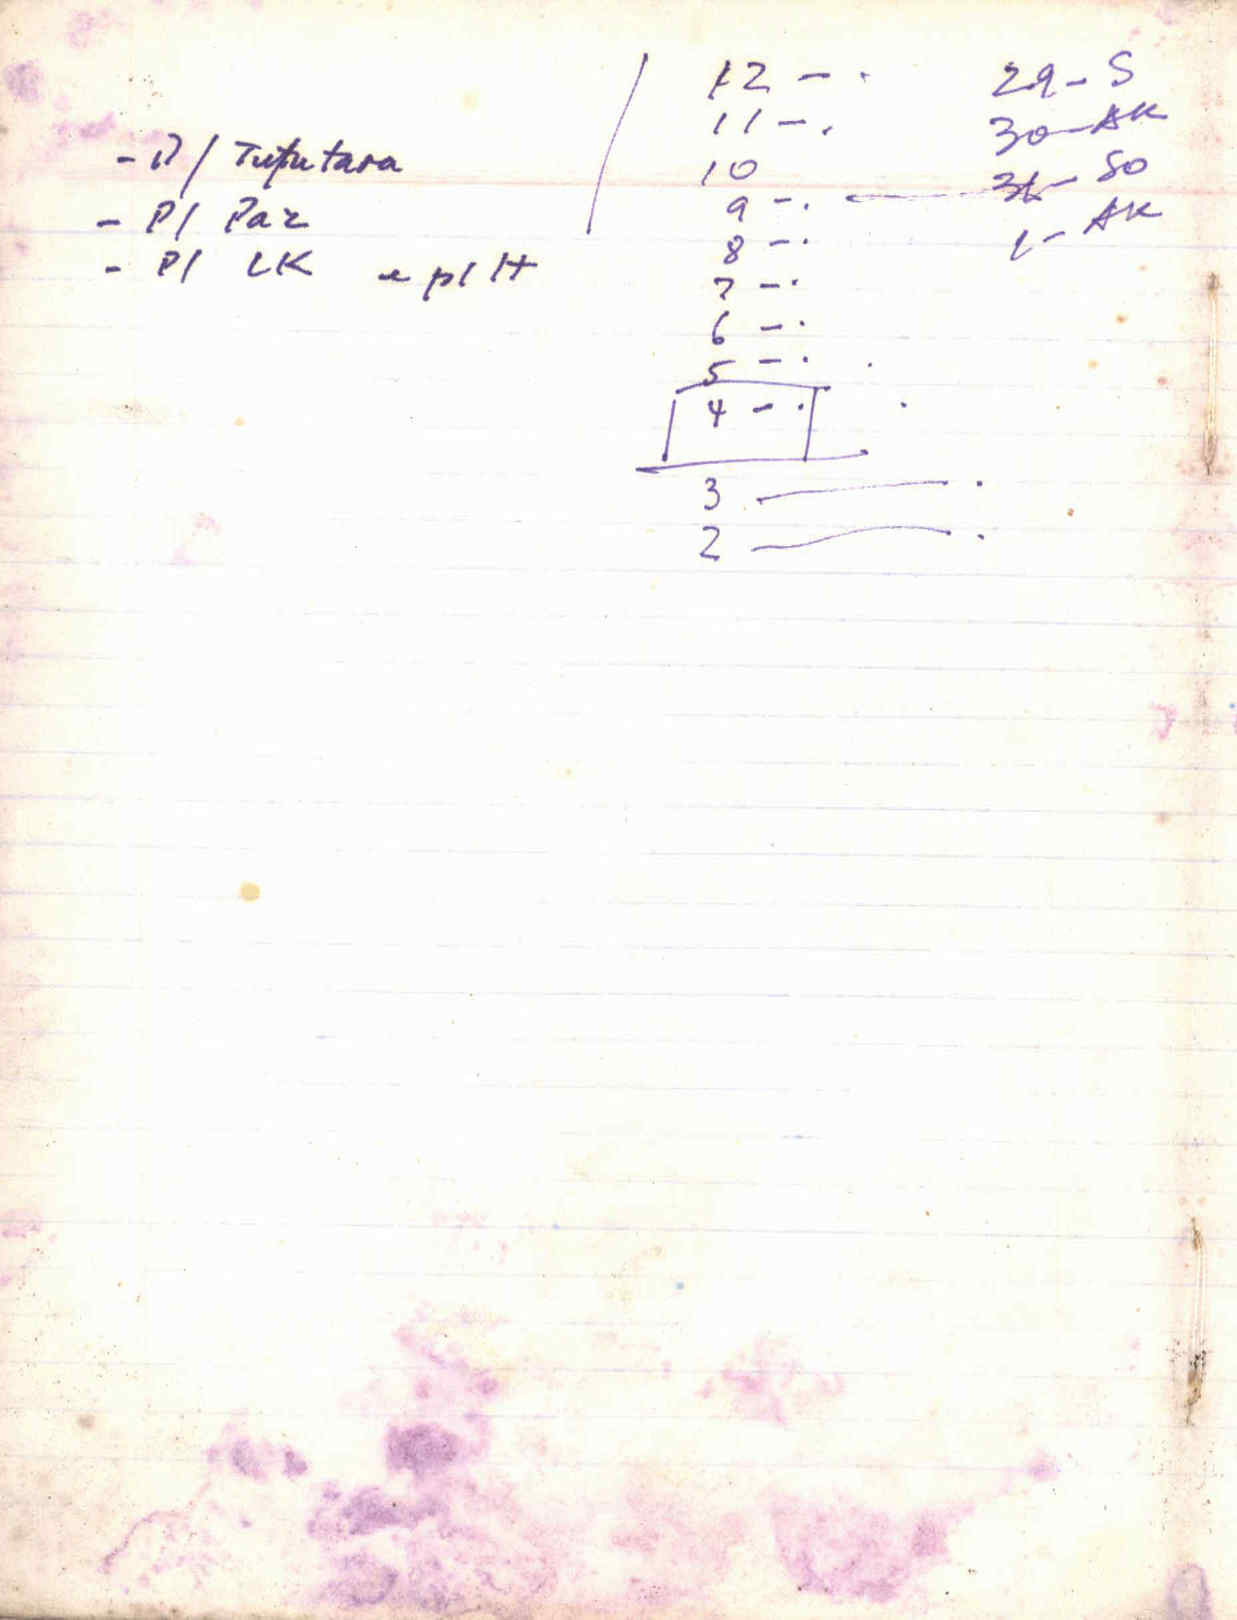 - P/ Tuputara
- P/ Paz
- P/ LK e p/ H
12 - .
11 - .
10
9 - .
8 - .
7 - .
6 - .
5 - .
4 - .
3 — .
2 — .
29 - S
30 - AK
31 - SO
1 - AK